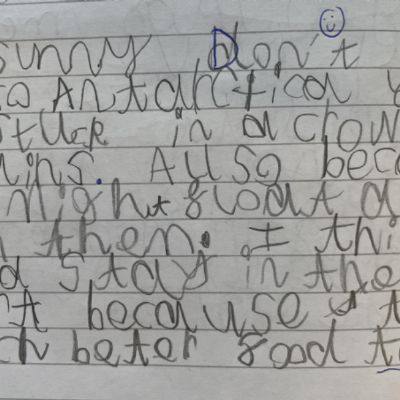 sunny Don't
to Antarctica
stuck in a crow
ins. Allso beca
might float a
them. I thi
d stay in the
nt because t
ch beter food t